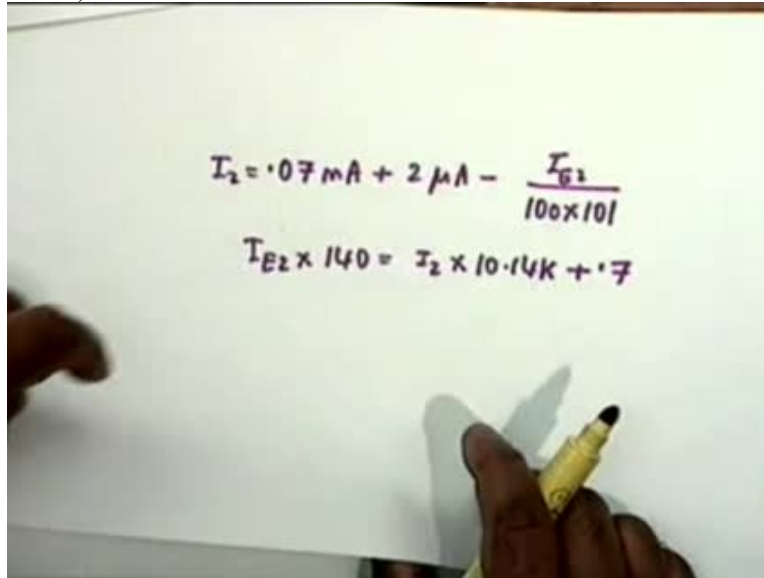 I₂ = ·07 mA + 2 μA − I_E2 / 100×101
I_E2 × 140 = I₂ × 10·14K + ·7